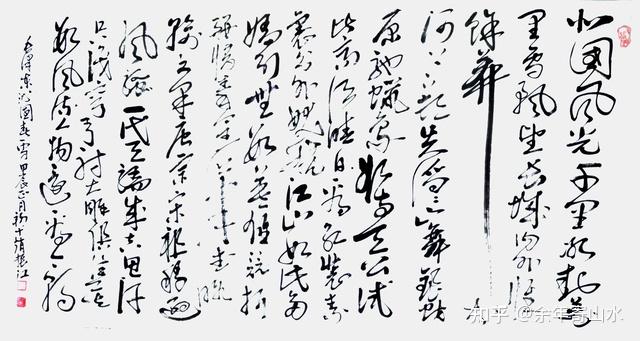 北国风光千里冰封万
里雪飘望长城内外惟
馀莽莽大
河上下顿失滔滔山舞银蛇
原驰蜡象欲与天公试
比高须晴日看红装素
裹分外妖娆江山如此多
娇引无数英雄竞折
腰惜秦皇汉武略
输文采唐宗宋祖稍逊
风骚一代天骄成吉思汗
只识弯弓射大雕俱往矣
数风流人物还看今朝
毛泽东沁园春雪甲辰正月初十
知乎 @余年寄山水